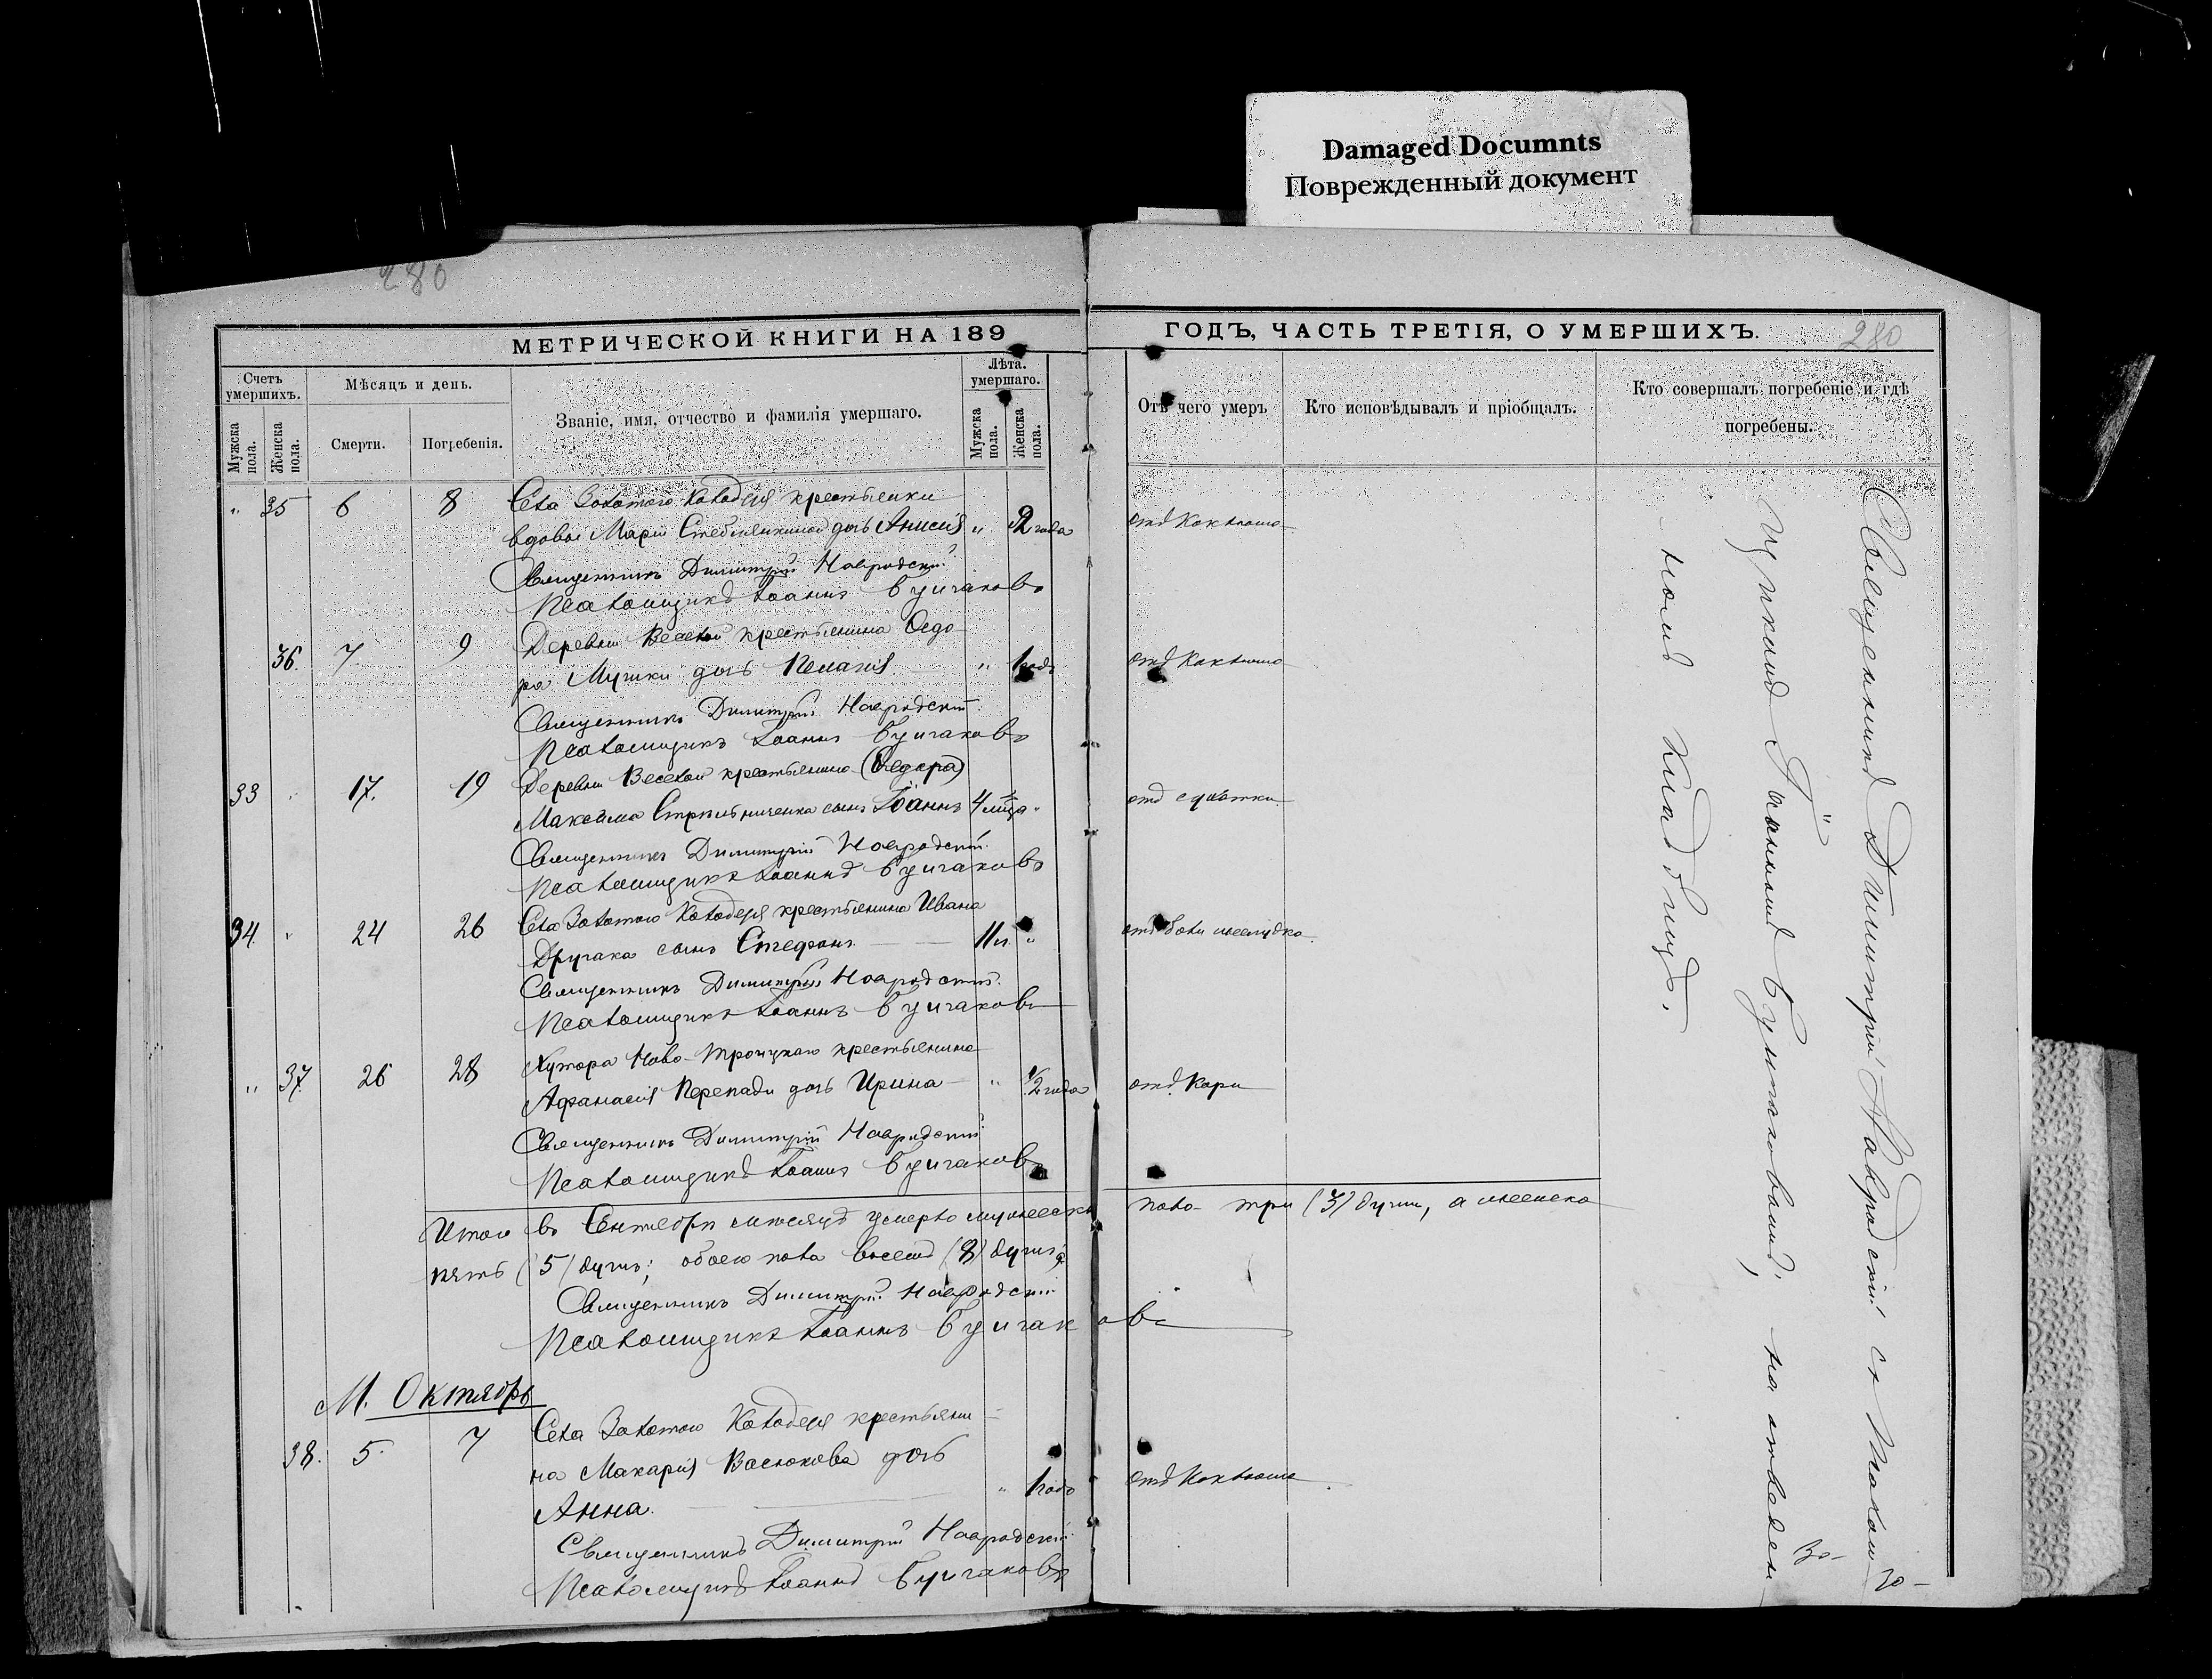 Damaged Documnts
Поврежденный документ
280
МЕТРИЧЕСКОЙ КНИГИ НА 189
ГОДЪ, ЧАСТЬ ТРЕТІЯ, О УМЕРШИХЪ.
280
Счетъ умершихъ.
Мужска пола.
Женска пола.
Мѣсяцъ и день.
Смерти.
Погребенія.
Званіе, имя, отчество и фамилія умершаго.
Лѣта. умершаго.
Мужска пола.
Женска пола.
Отъ чего умеръ
Кто исповѣдывалъ и пріобщалъ.
Кто совершалъ погребеніе и гдѣ
погребены.
" 35 6 8 Села Золотого Колодезя крестьянки
вдовы Маріи дочь Анисія " 2 года отъ Коклюша
Священникъ Димитрій Навродскій
Псаломщикъ Іоаннъ Булгаковъ
36. 7. 9 Деревни Веселой крестьянина Ѳедо-
ра Мушки дочь Пелагія. " 1 годъ отъ Коклюша
Священникъ Димитрій Навродскій.
Псаломщикъ Іоаннъ Булгаковъ
33 17. 19 Деревни Веселой крестьянина (Ѳедора)
Максима Стрѣльниченка сынъ Іоаннъ 4 мца " отъ
Священникъ Димитрій Навродскій.
Псаломщикъ Іоаннъ Булгаковъ
34. " 24 26 Села Золотого Колодезя крестьянина Ивана
Другака сынъ Стефанъ 11 л. " отъ боли желудка.
Священникъ Димитрій Навродскій.
Псаломщикъ Іоаннъ Булгаковъ
" 37. 26 28 Хутора Ново-Троицкаго крестьянина
Афанасія Перепади дочь Ирина " 1/2 года отъ Кори
Священникъ Димитрій Навродскій
Псаломщикъ Іоаннъ Булгаковъ
Итого въ Сентябрѣ мѣсяцѣ умерло мужеска пола три (3) души, а женска
пять (5) душъ; обоего пола восемь (8) душъ
Священникъ Димитрій Навродскій
Псаломщикъ Іоаннъ Булгаковъ
М. Октябрь
38. 5. 7 Села Золотого Колодезя крестьяни-
на Макарія Васюкова дочь
Анна. " 1 годъ отъ Коклюша.
Священникъ Димитрій Навродскій
Псаломщикъ Іоаннъ Булгаковъ
Священникъ Димитрій Навродскій съ Псаломщи-
комъ Іоанномъ Булгаковымъ, на отведен-
номъ кладбищѣ.